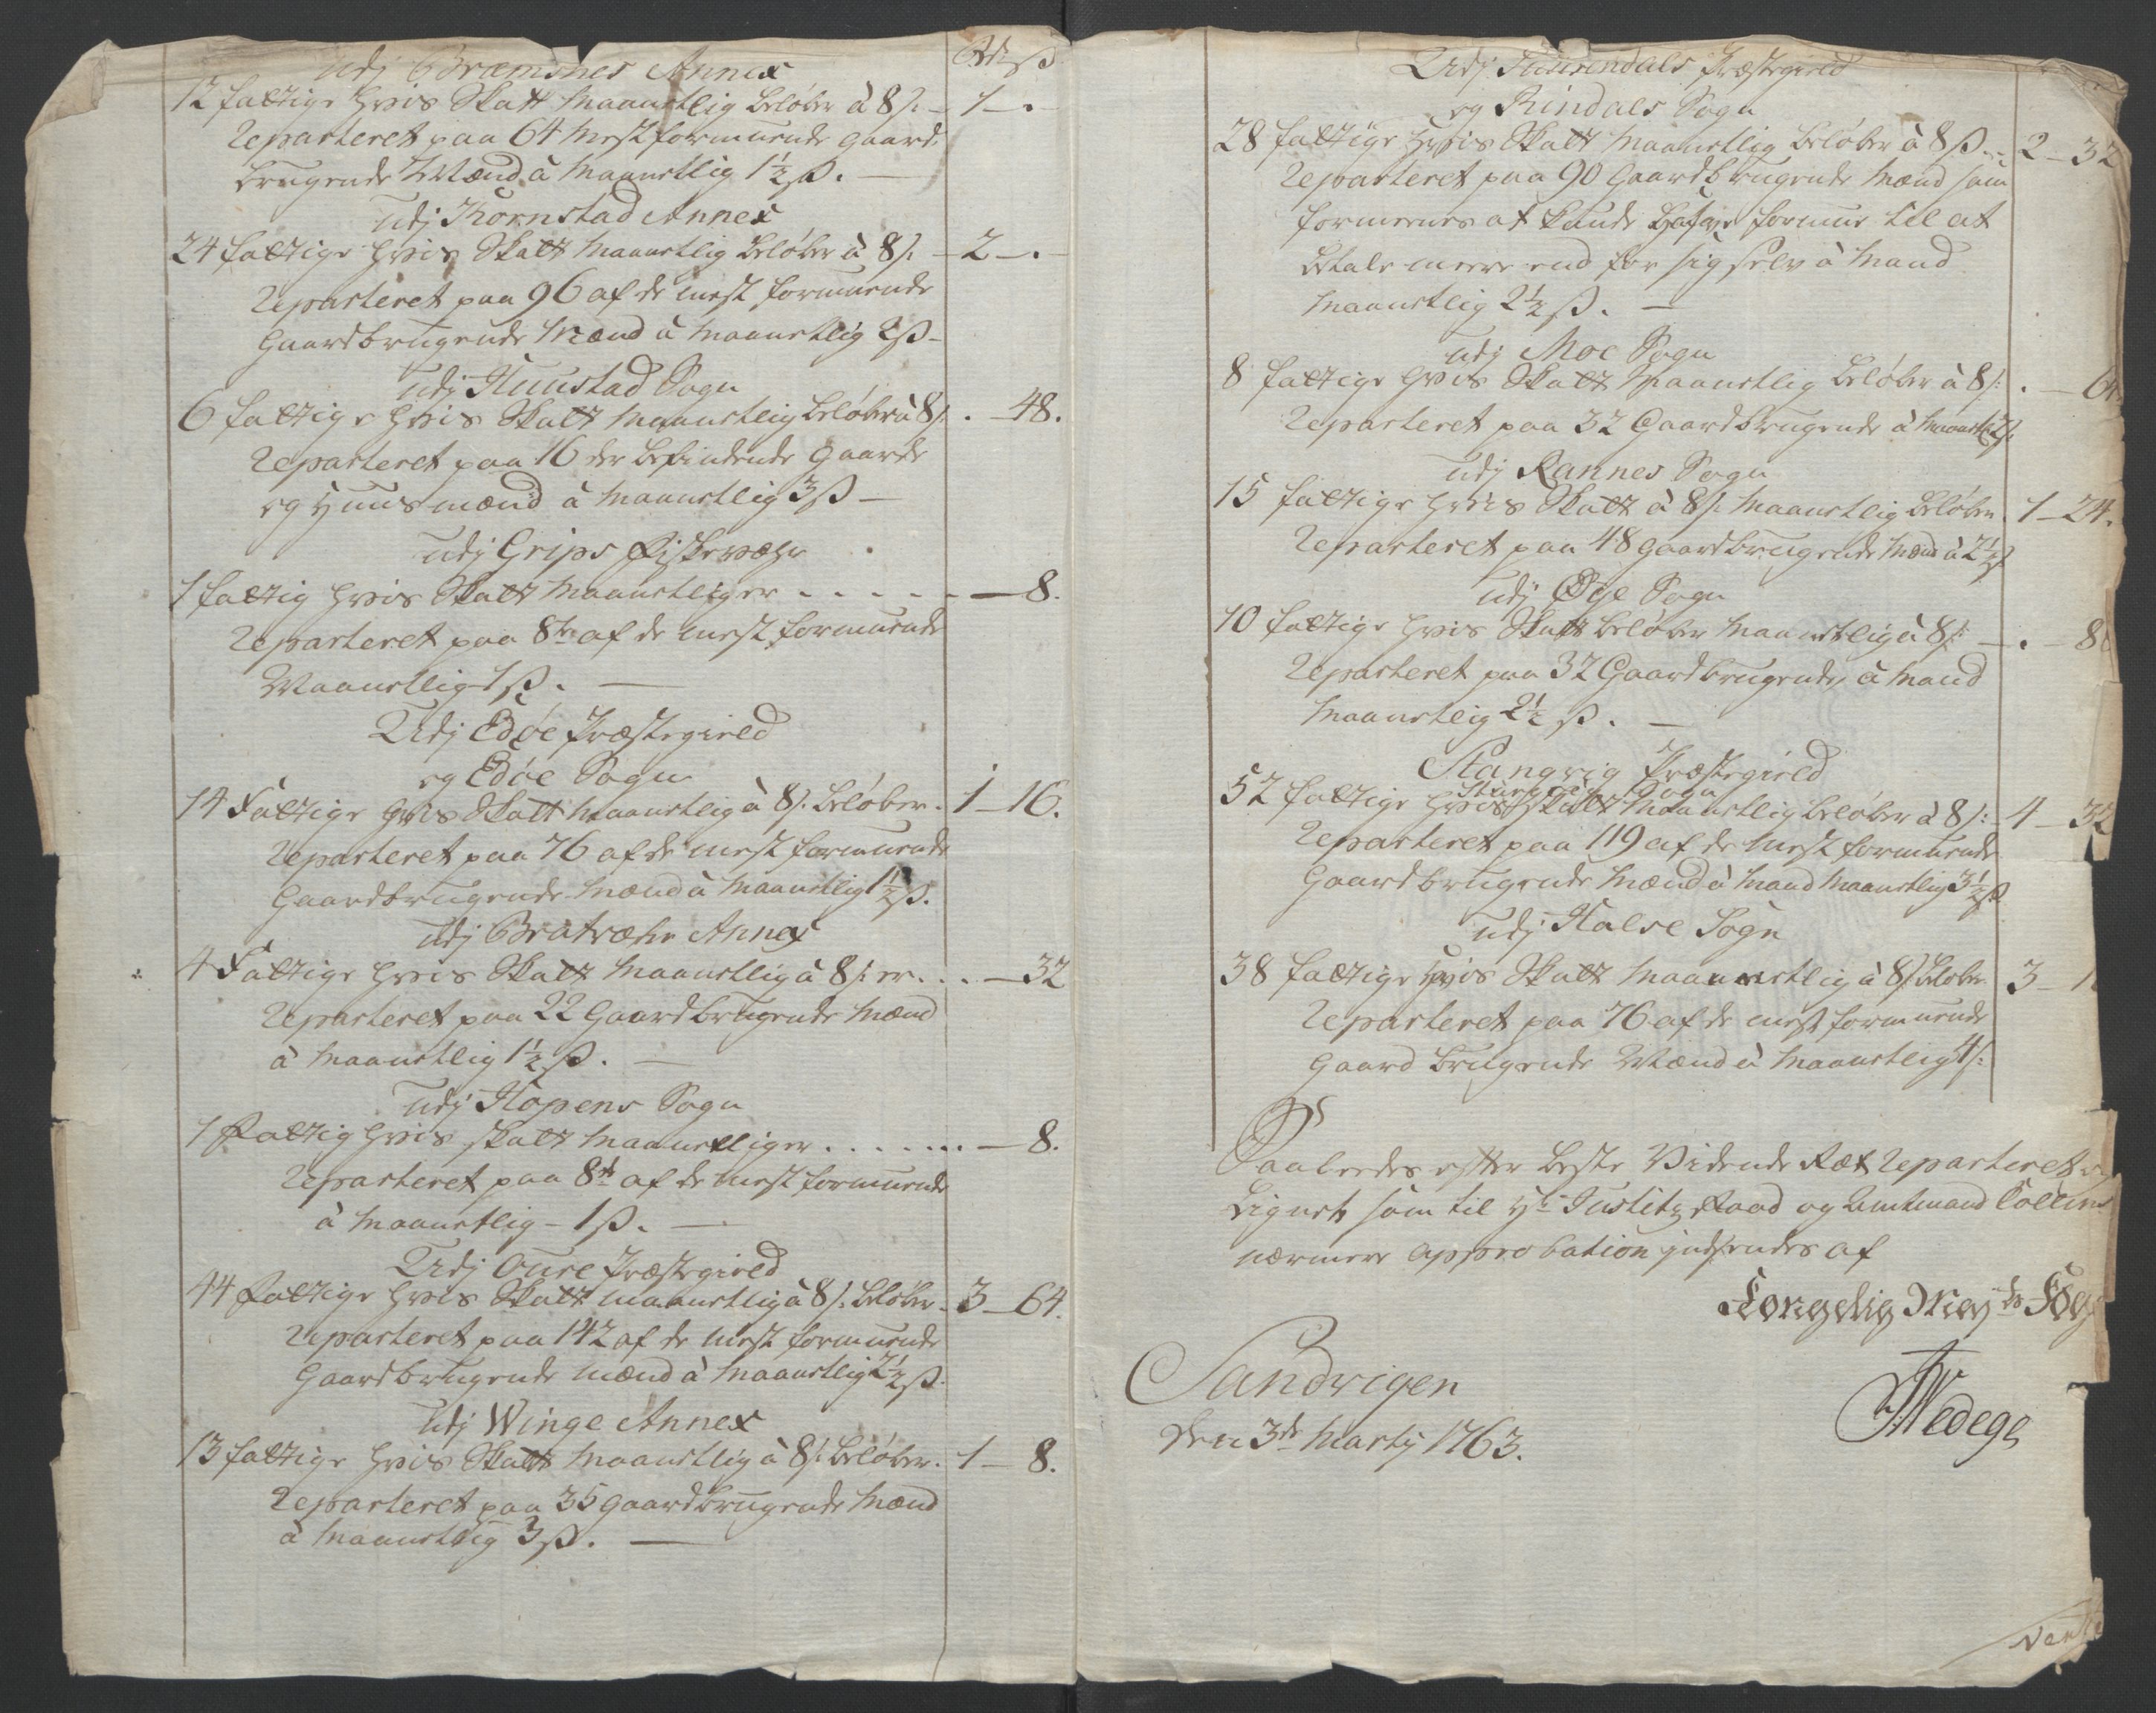 Rdr ß
Udj Bræmsnes Annex
12 fattige hvis Skatt Maanetlig beløber à 8 s. – 1 – .
Reparteret paa 64 Mest formuende gaard-
brugende Mænd à Maanetlig 1½ ß. —
Udj Kornstad Annex
24 fattige hvis Skatt Maanetlig beløber à 8 s. – 2 – . –
Reparteret paa 96 af de mest formuende
Gaardbrugende Mænd à Maanetlig 2 ß –
Udj Huustad Sogn
6 fattige hvis Skatt Maanetlig beløber à 8 s. . – 48.
Reparteret paa 16 der befindende gaarde
og Huusmænd à Maanetlig 3 ß —
Udj Grips Fiskevæhr
1 fattig hvis Skatt Maanetlig er - - - - - — 8.
Reparteret paa 8te af de mest formuende
Maanetlig 1 ß. —
Udj Edøe Præstegield
og Edøe Sogn
14 Fattige hvis Skatt Maanetlig à 8 s. beløber. 1 – 16.
Reparteret paa 76 af de mest formuende
Gaardbrugende Mænd à Maanetlig 1½ ß.
Udj Bratvæhr Annex
4 Fattige hvis Skatt Maanetlig à 8 s. er. . . – 32
Reparteret paa 22 Gaardbrugende Mænd
à Maanetlig 1½ ß. —
Udj Hopens Sogn
1 Fattig hvis Skatt Maanetlig er . . . . . . . – 8.
Reparteret paa 8te af de mest formuende
à Maanetlig – 1 ß. —
Udj Oure Præstegield
44 Fattige hvis Skatt Maanetlig à 8 s. beløber – 3 – 64.
Reparteret paa 142 af de mest formuende
Gaardbrugende Mænd à Maanetlig 2½ ß.
Udj Winge Annex
13 fattige hvis Skatt Maanetlig à 8 s. beløber. 1 – 8.
Reparteret paa 35 gaardbrugende Mænd
à Maanetlig 3 ß. —
Udj Surendals Præstegield
og Rindals Sogn
28 fattige hvis Skatt Maanetlig beløber à 8 ß. – 2 – 32
Reparteret paa 90 Gaardbrugende Mænd som
formeenes at kunde hafve formue til at
betale meere end for sig selv à Mand
Maanetlig 2½ ß. —
Udj Moe Sogn
8 fattige hvis Skatt Maanetlig beløber à 8 s: . – 64
Reparteret paa 32 Gaardbrugende à Maanetl: 2 s.
Udj Rannes Sogn
15 fattige hvis Skatt à 8 s. Maanetlig beløber. 1 – 24.
Reparteret paa 48 gaardbrugende Mænd à 2½ ß
Udj Øye Sogn
10 fattige hvis Skatt beløber Maanetlig à 8 s: – . – 80
Reparteret paa 32 Gaardbrugende, à Mand
Maanetlig 2½ ß. —
Stangvig Præstegield
Stangvig Sogn
52 fattige hvis Skatt Maanetlig beløber à 8 s: – 4 – 32
Reparteret paa 119 af de mest formuende
Gaardbrugende Mænd à Mand Maanetlig 3½ ß
Udj Halse Sogn
38 fattige hvis Skatt Maanetlig à 8 s. beløber 3 – 1
Reparteret paa 76 af de mest formuende
gaard brugende Mænd à Maanetlig 4 s:
Saaleedes efter beste Vidende Ræt Reparteret og
Lignet, som til Hr Justitz Raad og Amtmand Collins
nærmere approbation indsendes af
Kongelig May:ts Fog
Sandvigen
den 3de Martij 1763.
Wedege